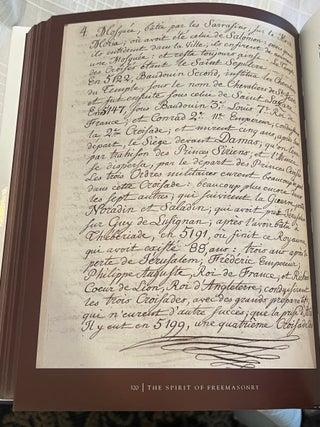 4. Mosquée, bâtie par les Sarrasins, sur le
Moria, où avoit été celui de Salomon.
ils entrèrent dans la Ville, ils en firent
une Mosquée, et resta toujours
des Croisés étant le Saint Sépulcre.
En 5122, Baudouin Second, institua les Chev
du Temple, sous le nom de Chevaliers de
et fut ensuite sous celui de Saint
En 5147. Sous Baudouin 3e. Louis 7. R
France, et Conrad 2e. Empereur
la 2me. Croisade, et mirent cinq ans, après
départ, le Siège devant Damas, qu'on
par trahison des Princes Siriens, et l'
se dispersa, par le départ des Princes Croisés
Les trois Ordres militaires eurent beaucoup
dans cette Croisade: beaucoup plus encore
les sept autres; qui suivirent la Guerre
Noradin et Saladin, qui avoit pris Jerusalem
sur Guy de Lusignan, après l'avoir
Thibériade, en 5191, où finit ce Royaume
qui avoit existé 88, ans: trois ans après
perte de Jerusalem, Fréderic Empereur
Philippe Auguste, Roi de France, et Richard
Coeur de Lion, Roi d'Angleterre; conduisirent
les trois Croisades, avec des grands préparatifs
qui n'eurent d'autre succès; que la prise
Il y eut en 5199, une quatrième Croisade
120 | THE SPIRIT OF FREEMASONRY